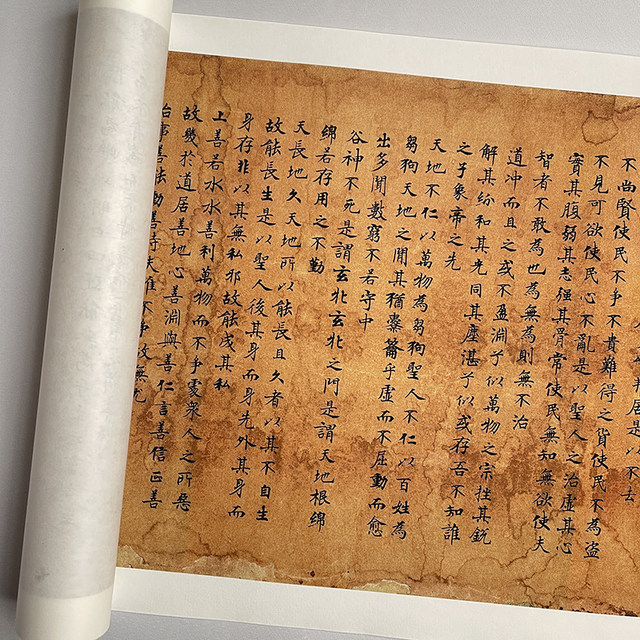 居是以不去
不尚賢使民不争不貴難得之貨使民不為盜
不見可欲使民心不亂是以聖人之治虛其心
實其腹弱其志强其骨常使民無知無欲使夫
智者不敢為也為無為則無不治
道冲而且之或不盈淵乎似萬物之宗挫其銳
解其紛和其光同其塵湛乎似或存吾不知誰
之子象帝之先
天地不仁以萬物為芻狗聖人不仁以百姓為
芻狗天地之間其猶橐籥乎虛而不屈動而愈
出多聞數窮不若守中
谷神不死是謂玄牝玄牝之門是謂天地根綿
綿若存用之不勤
天長地久天地所以能長且久者以其不自生
故能長生是以聖人後其身而身先外其身而
身存非以其無私邪故能成其私
上善若水水善利萬物而不争處衆人之所惡
故幾於道居善地心善淵與善仁言善信正善
治事善能動善時夫唯不争故無尤